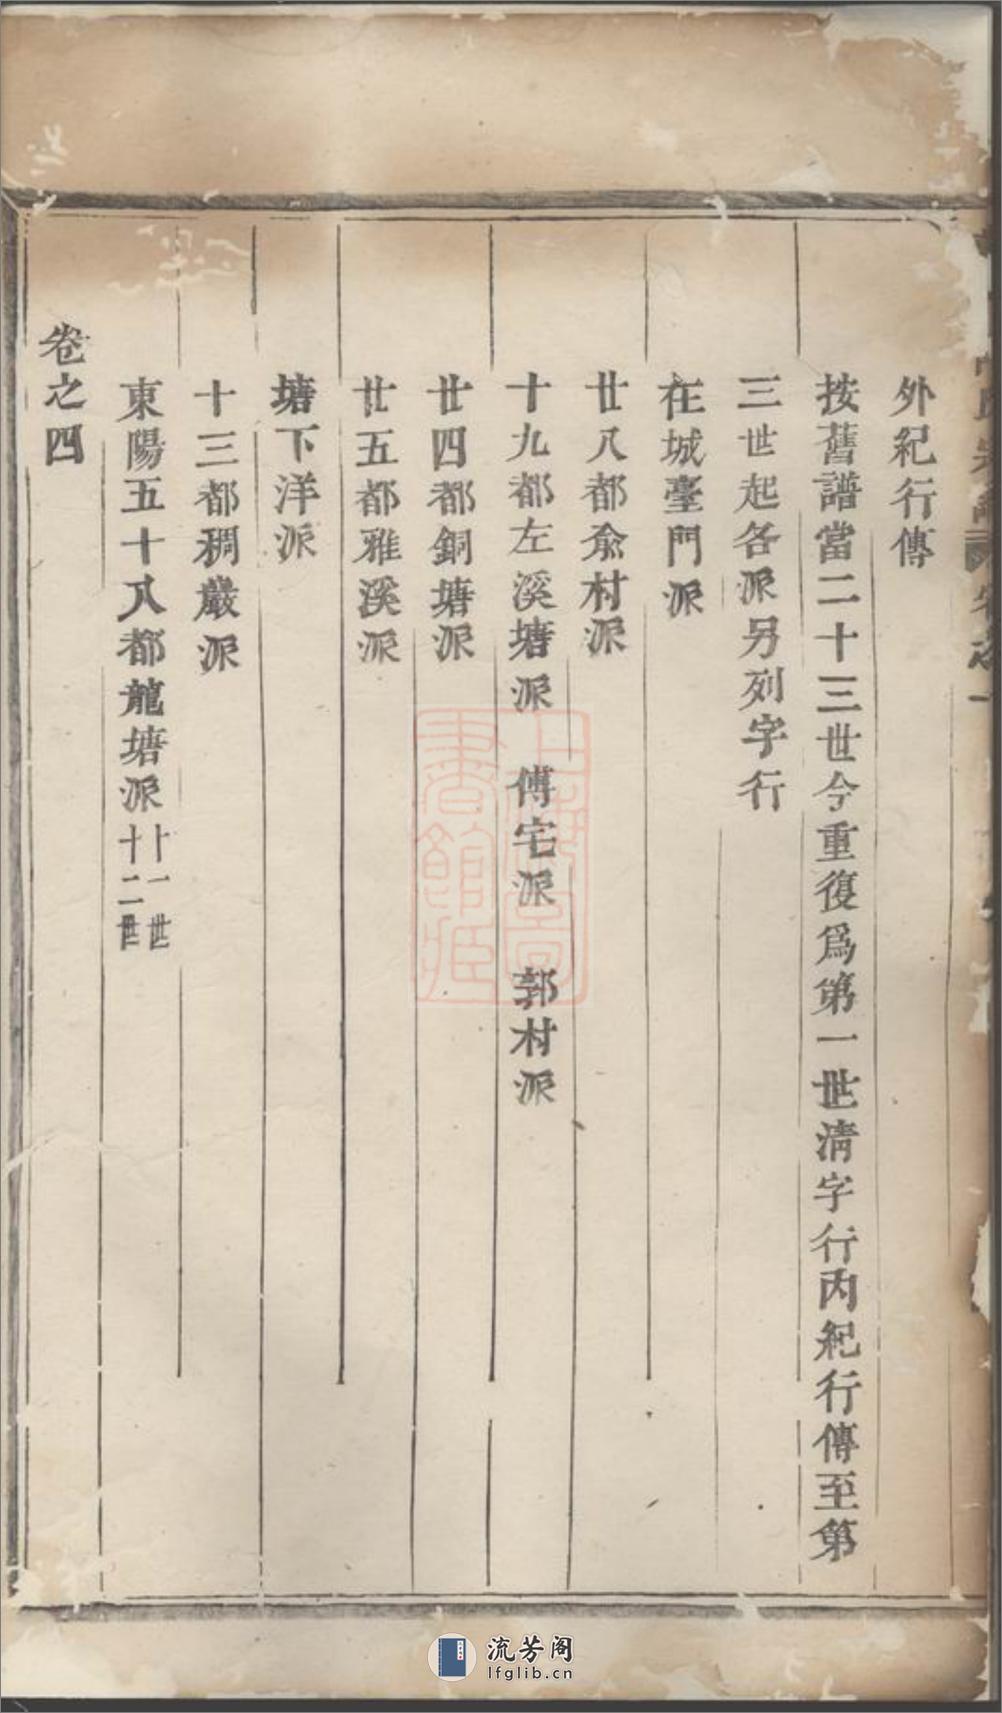 外紀行傳
按舊譜當二十三世今重復爲第一世淸字行內紀行傳至第
三世起各派另列字行
在城臺門派
廿八都兪村派
十九都左溪塘派 傅宅派 郭村派
廿四都銅塘派
廿五都雅溪派
塘下洋派
十三都稠巖派
東陽五十八都龍塘派十一世十二世
卷之四
上海圖書館藏
流芳阁
lfglib.cn